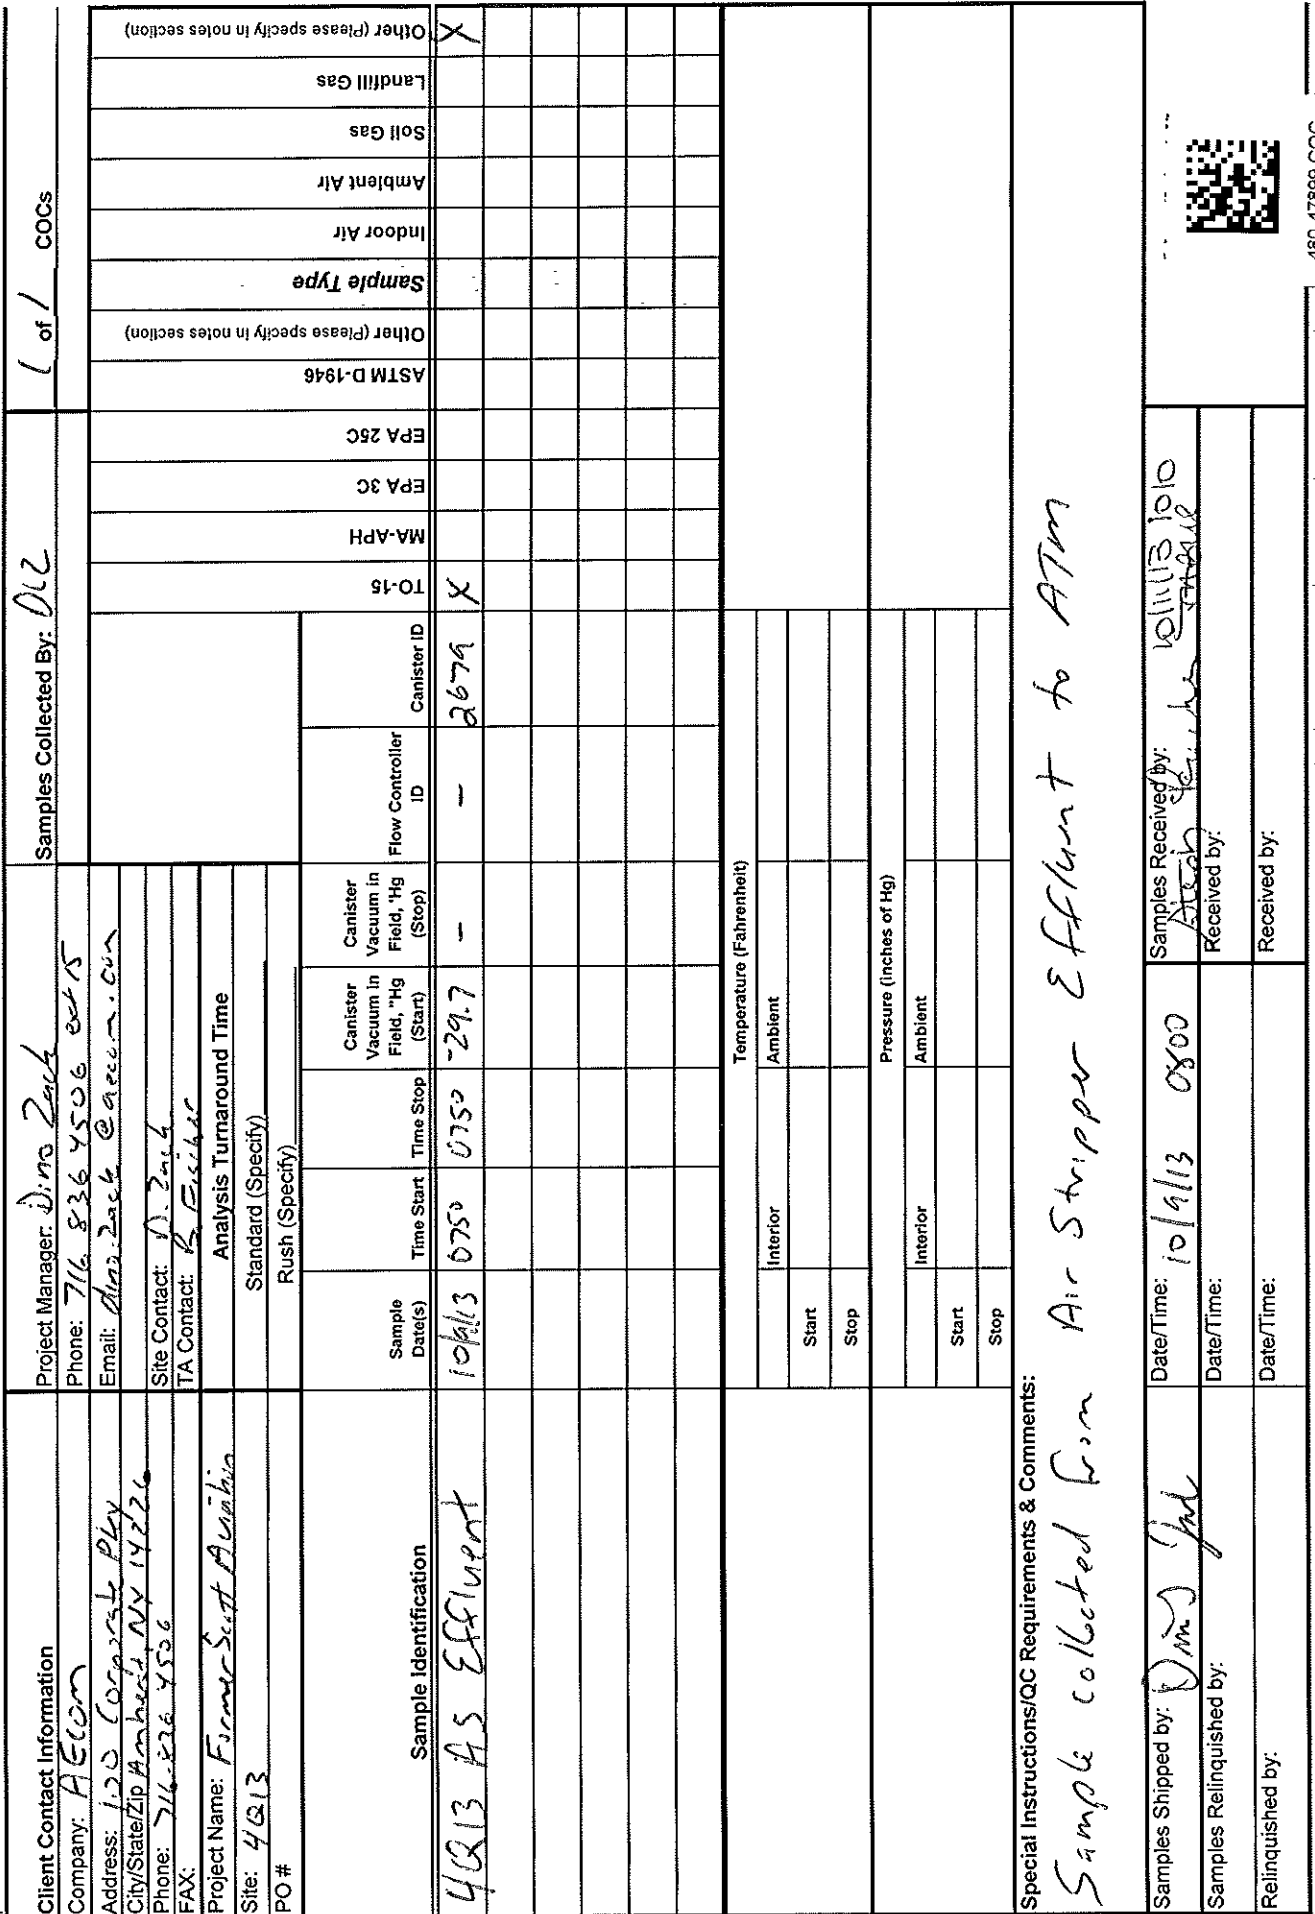 Client Contact Information
Company: AECOM
Address: 100 Corporate Pkwy
City/State/Zip Amherst, NY 14226
Phone: 716-836-4506
FAX:
Project Name: Former Scott Aviation
Site: 4Q13
PO #
Project Manager: Dino Zack
Phone: 716 836 4506 ext 15
Email: dino.zack@aecom.com
Site Contact: D. Zack
TA Contact: B. Fischer
Analysis Turnaround Time
Standard (Specify)
Rush (Specify)
Samples Collected By: DLZ
1 of 1 COCs
Sample Identification
Sample Date(s)
Time Start
Time Stop
Canister Vacuum in Field, "Hg (Start)
Canister Vacuum in Field, 'Hg (Stop)
Flow Controller ID
Canister ID
TO-15
MA-APH
EPA 3C
EPA 25C
ASTM D-1946
Other (Please specify in notes section)
Sample Type
Indoor Air
Ambient Air
Soil Gas
Landfill Gas
Other (Please specify in notes section)
4Q13 AS Effluent 10/9/13 0750 0750 -29.7 - - 2679 X X
Temperature (Fahrenheit)
Interior Ambient
Start
Stop
Pressure (inches of Hg)
Interior Ambient
Start
Stop
Special Instructions/QC Requirements & Comments:
Sample collected from Air Stripper Effluent to ATM
Samples Shipped by: Date/Time: 10/9/13 0800 Samples Received by: 10/11/13 1010
Samples Relinquished by: Date/Time: Received by:
Relinquished by: Date/Time: Received by:
480-47899 COC